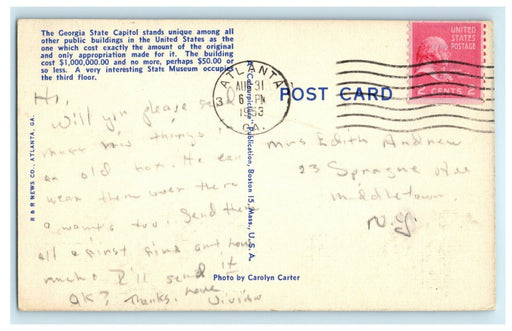 The Georgia State Capitol stands unique among all
other public buildings in the United States as the
one which cost exactly the amount of the original
and only appropriation made for it. The building
cost $1,000,000.00 and no more, perhaps $50.00 or
so less. A very interesting State Museum occupies
the third floor.
R & R NEWS CO., ATLANTA, GA.
A "Colourpicture" Publication, Boston 15, Mass., U.S.A.
ATLANTA
AUG 31
6 PM
1953
3
GA.
POST CARD
UNITED
STATES
POSTAGE
2 CENTS 2
Hi,
Will you please send
things
an old
He can
wear them over there
too. Send them
all
find out how
much I'll send it
OK? Thanks. Love
Vivian
Mrs Edith Andrew
23 Sprague Ave
Middletown
N.Y.
Photo by Carolyn Carter